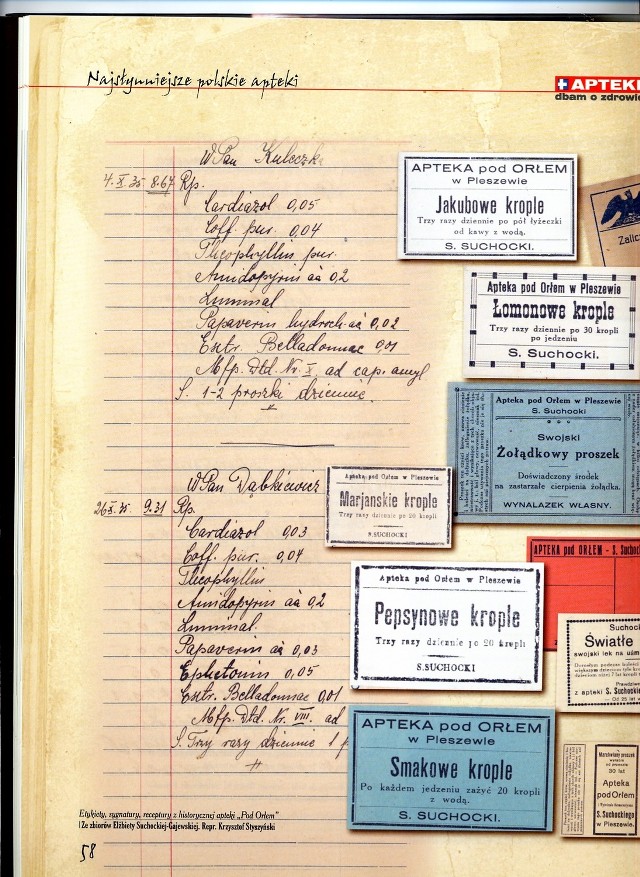 Najsłynniejsze polskie apteki
APTEKI
dbam o zdrowie
WPan Kuleczka
4.X.35 8.67 Rp.
Cardiazol 0,05
Coff. pur. 0,04
Theophyllin pur.
Amidopyrin aa 0,2
Luminal
Papaverin hydroch. aa 0,02
Extr. Belladonnae 0,01
Mfp. Dtd. Nr. X. ad cap. amyl
S. 1-2 proszki dziennie.
WPan Dąbkiewicz
26.X.35 9.31 Rp.
Cardiazol 0,03
Coff. pur. 0,04
Theophyllin
Amidopyrin aa 0,2
Luminal
Papaverin aa 0,03
Ephetonin 0,05
Extr. Belladonnae 0,01
Mfp. Dtd. Nr. VIII. ad
S. Trzy razy dziennie 1 p
APTEKA pod ORŁEM
w Pleszewie
Jakubowe krople
Trzy razy dziennie po pół łyżeczki
od kawy z wodą.
S. SUCHOCKI.
Zalic
Apteka pod Orłem w Pleszewie
Łomonowe krople
Trzy razy dziennie po 30 kropli
po jedzeniu
S. Suchocki.
Apteka pod Orłem w Pleszewie
S. Suchocki
Swojski
Żołądkowy proszek
Doświadczony środek
na zastarzałe cierpienia żołądka.
WYNALAZEK WŁASNY.
Apteka pod Orłem w Pleszewie
Marjańskie krople
Trzy razy dziennie po 20 kropli
S.SUCHOCKI
APTEKA pod ORŁEM - S. Sucho
Apteka pod Orłem w Pleszewie
Pepsynowe krople
Trzy razy dziennie po 20 kropli
S.SUCHOCKI
Suchock
Światłe
swojski lek na uśm
Prawdziwe
z apteki S. Suchockie
Od 25 lat
APTEKA pod ORŁEM
w Pleszewie
Smakowe krople
Po każdem jedzeniu zażyć 20 kropli
z wodą.
S. SUCHOCKI.
30 lat
Apteka
pod Orłem
S. Suchockiego
w Pleszewie.
Etykiety, sygnatury, receptury z historycznej apteki „Pod Orłem"
| Ze zbiorów Elżbiety Suchockiej-Gajewskiej. Repr. Krzysztof Styszyński
58